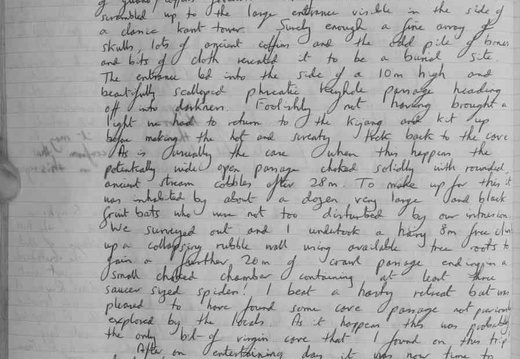 scrambled up to the large entrance visible in the side of
a classic karst tower. Surely enough a fine array of
skulls, lots of ancient coffins and the odd pile of bones
and bits of cloth revealed it to be a burial site.
The entrance led into the side of a 10m high and
beautifully scalloped phreatic keyhole passage heading
off into darkness. Foolishly not having brought a
light we had to return to the Kijang and kit up
before making the hot and sweaty trek back to the cave
As is usually the case when this happens the
potentially wide open passage choked solidly with rounded
ancient stream cobbles after 28m. To make up for this it
was inhabited by about a dozen very large and black
fruit bats who were not too disturbed by our intrusion.
We surveyed out and I undertook a hairy 8m free climb
up a collapsing rubble wall using available tree roots to
gain a further 20m of crawl passage ending in a
small choked chamber containing at least three
saucer sized spiders! I beat a hasty retreat but was
pleased to have found some cave passage not previously
explored by the locals. As it happens this was probably
the only bit of virgin cave that I found on this trip
After an entertaining day it was now time to